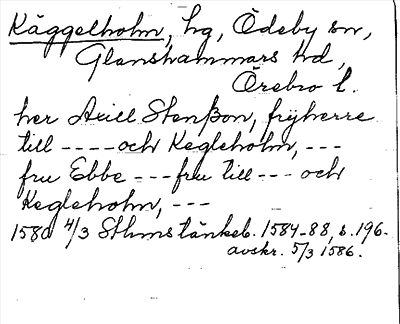 Käggelholm, hg, Ödeby sn,
Glanshammars hd,
Örebro l.
her Axill Stenßon, frijherre
till ---- och Kegleholm, ---
fru Ebbe --- fru till --- och
Kegleholm, ---
1580 4/3 Sthms tänkeb. 1584-88, s. 196.
avskr. 5/3 1586.